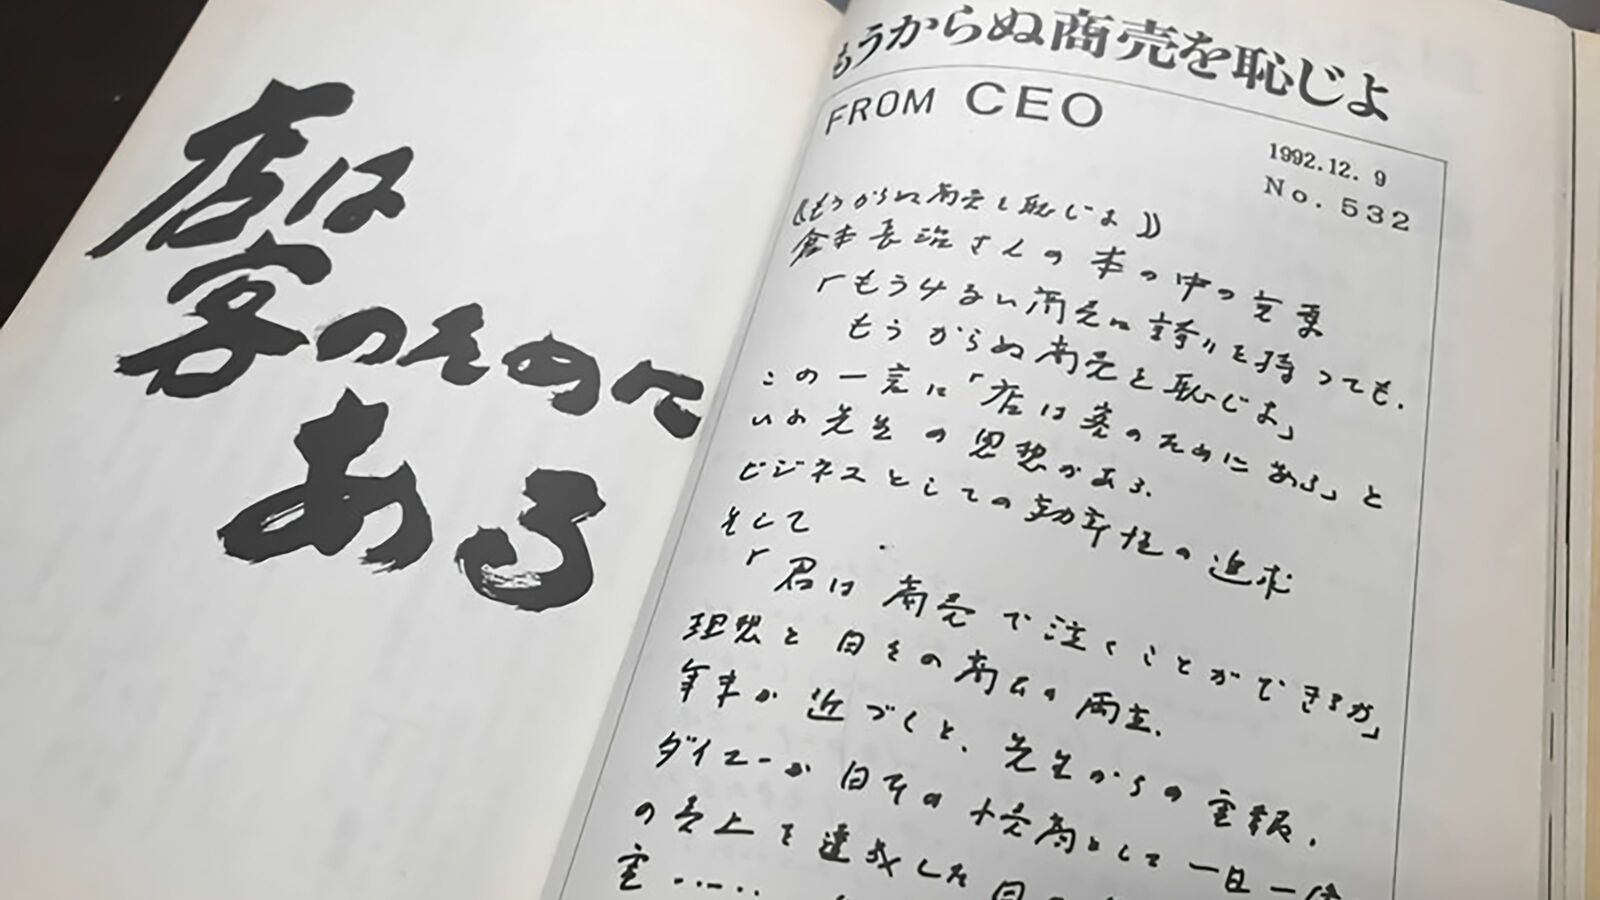 店は
客のために
ある
もうからぬ商売を恥じよ
FROM CEO
1992.12.9
No.532
《もうからぬ商売を恥じよ》
倉本長治さんの本の中の言葉
「もうけるい商売に誇りを持っても、
もうからぬ商売を恥じよ」
この一言に「店は客のためにある」と
いう先生の思想がある。
ビジネスとしての効率性の追求
そして
「君は商売で泣くことができるか」
理想と日々の商いの両立。
年末が近づくと、先生からの電報。
ダイエーが日本の小売商として一日一億
の売上を達成した日
電……